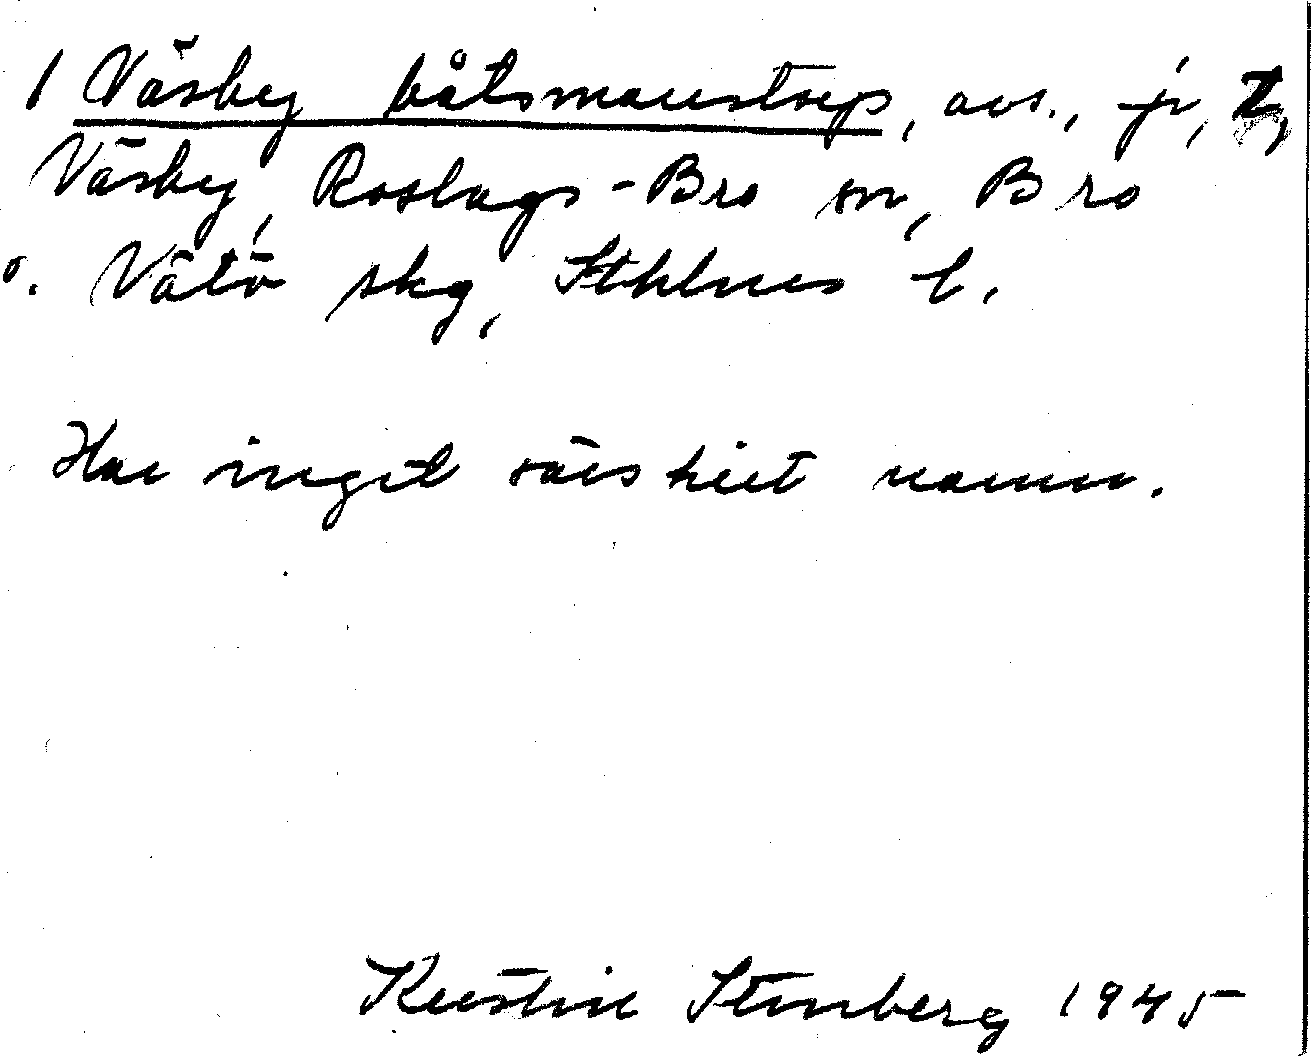 1 Väsby båtsmanstorp, avs., jr,
Väsby, Roslags-Bro sn, Bro
o. Vätö skg, Sthlms l.
Har inget särskilt namn.
Kerstin Stenberg 1945